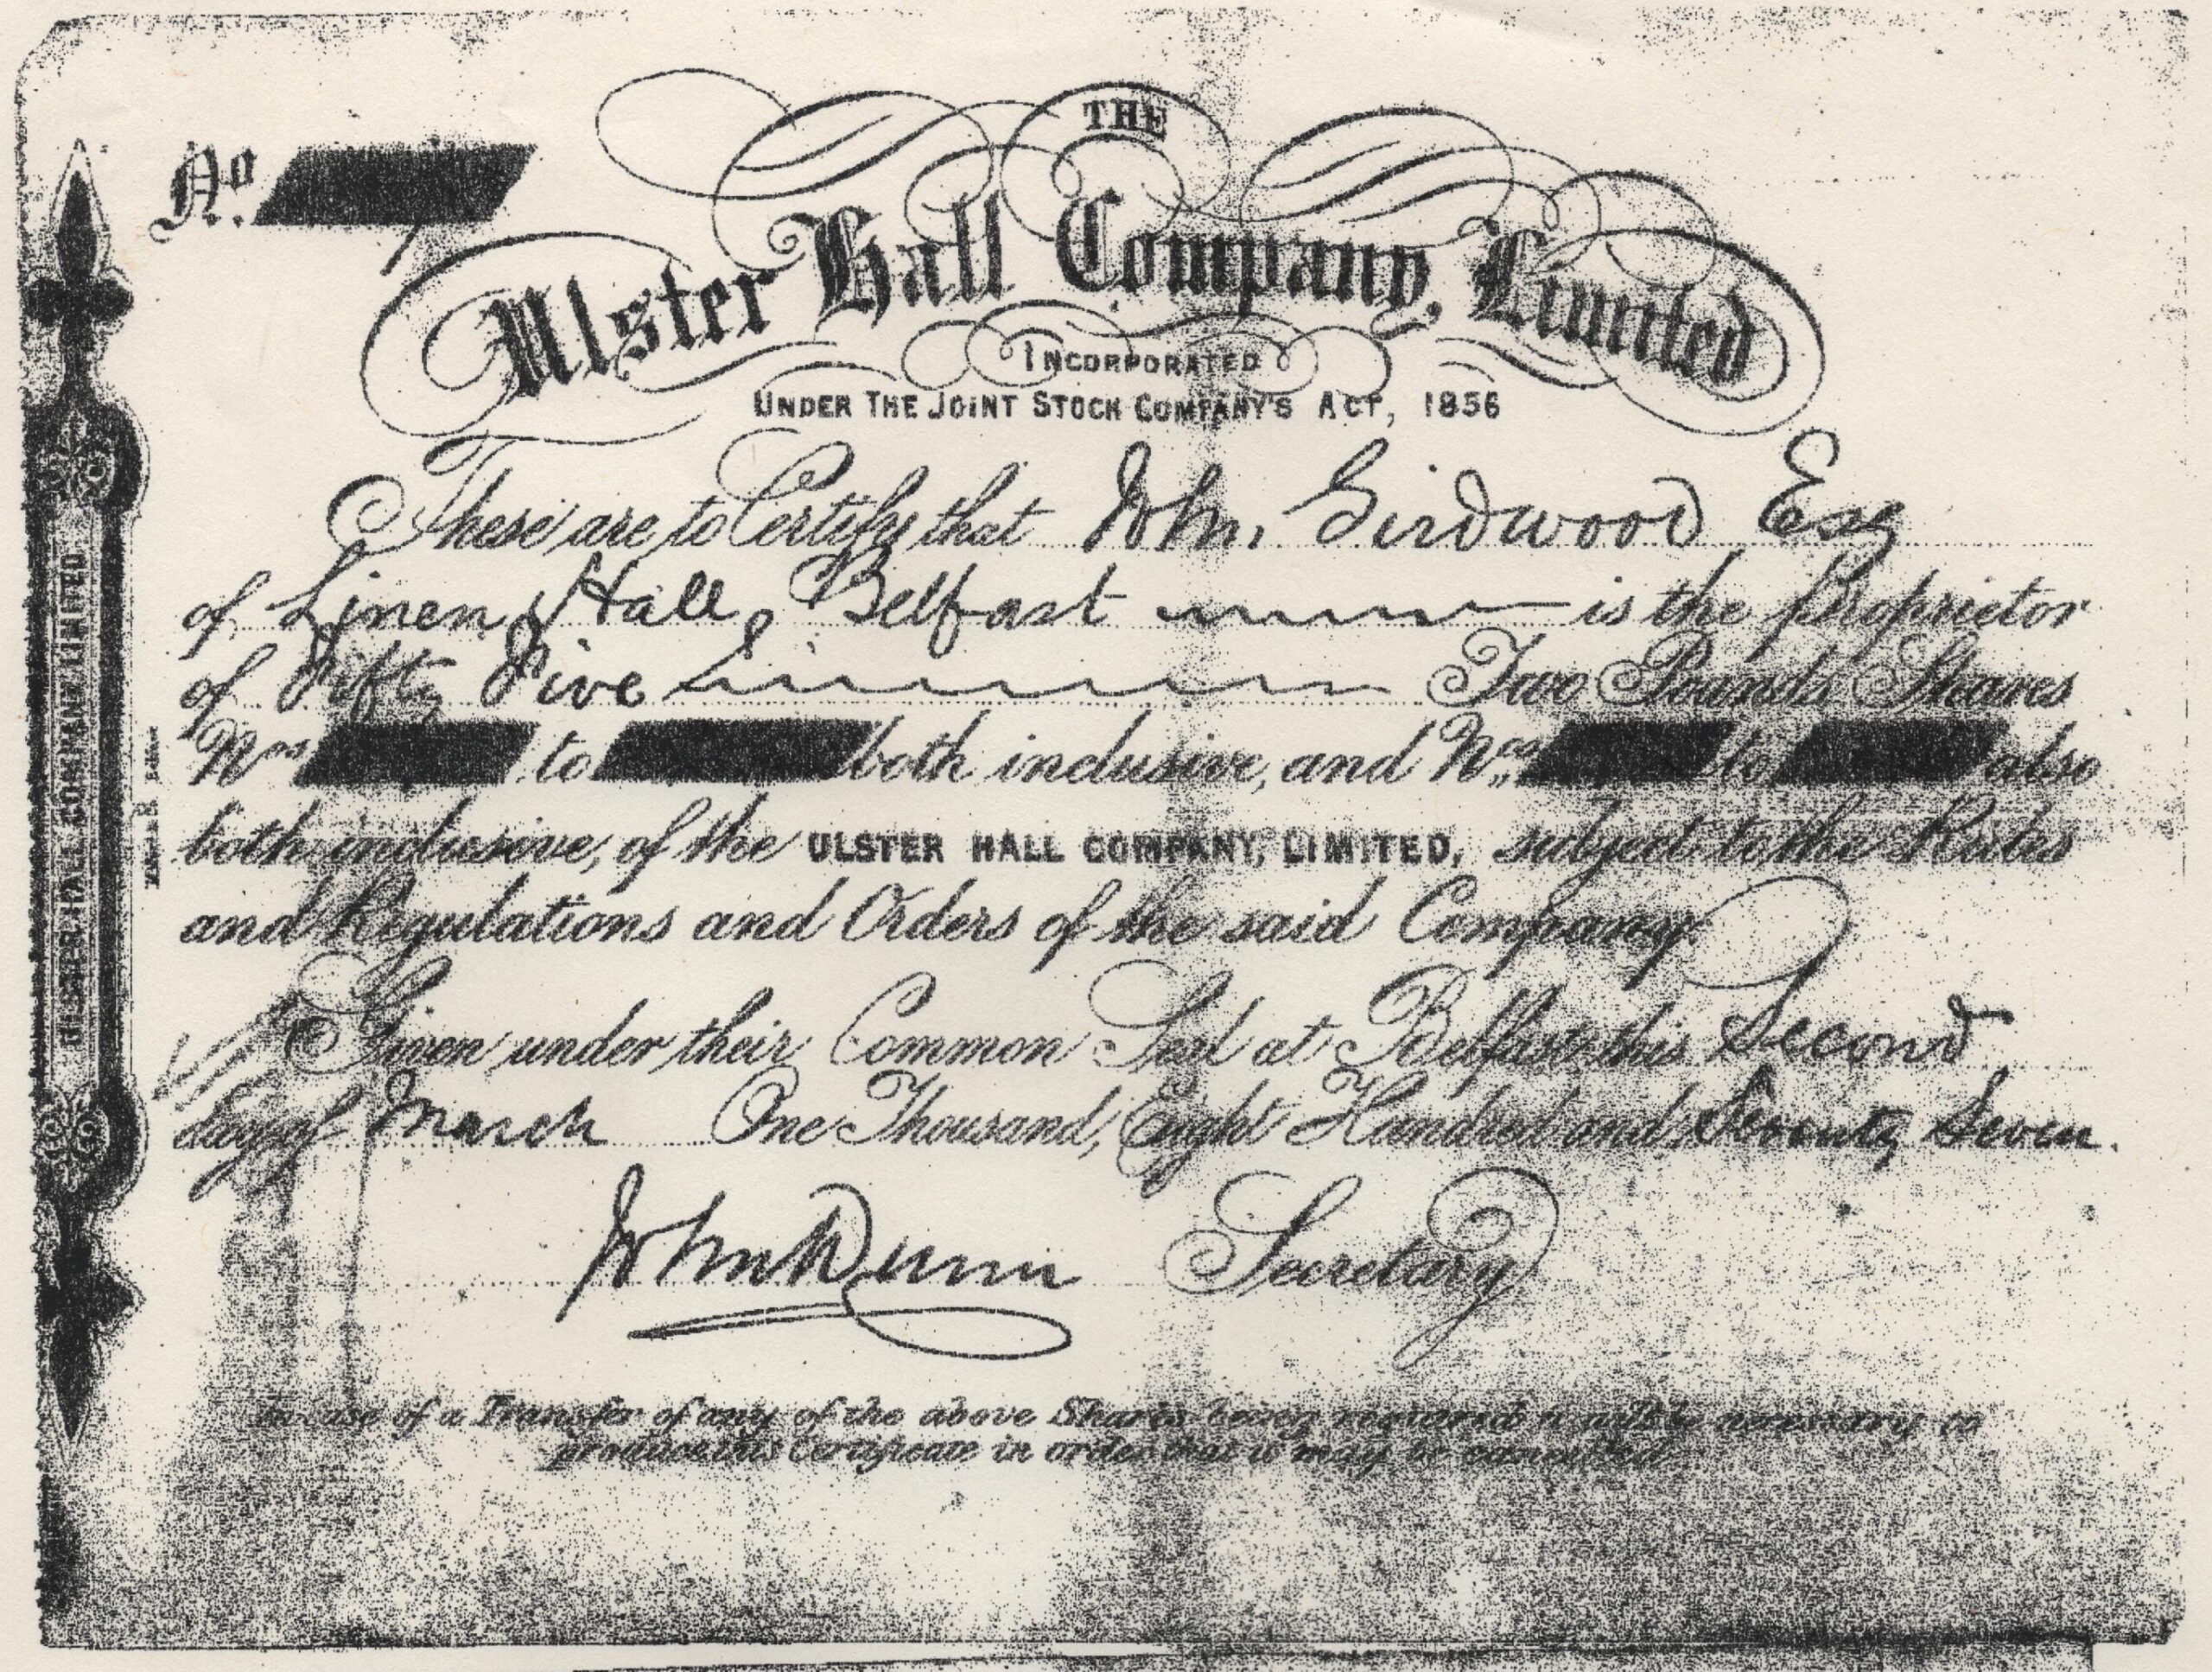 THE
No.
Ulster Hall Company, Limited
INCORPORATED
UNDER THE JOINT STOCK COMPANY'S ACT, 1856
These are to Certify that John Girdwood Esq
of Linen Hall, Belfast is the Proprietor
of Fifty Five Two Pounds Shares
Nos to both inclusive, and Nos to also
both inclusive, of the ULSTER HALL COMPANY, LIMITED, subject to the Rules
and Regulations and Orders of the said Company.
Given under their Common Seal at Belfast this Second
day of March One Thousand, Eight Hundred and Seventy Seven.
John Dunn Secretary
In case of a Transfer of any of the above Shares being required it will be necessary to
produce this Certificate in order that it may be cancelled.
ULSTER HALL COMPANY LIMITED